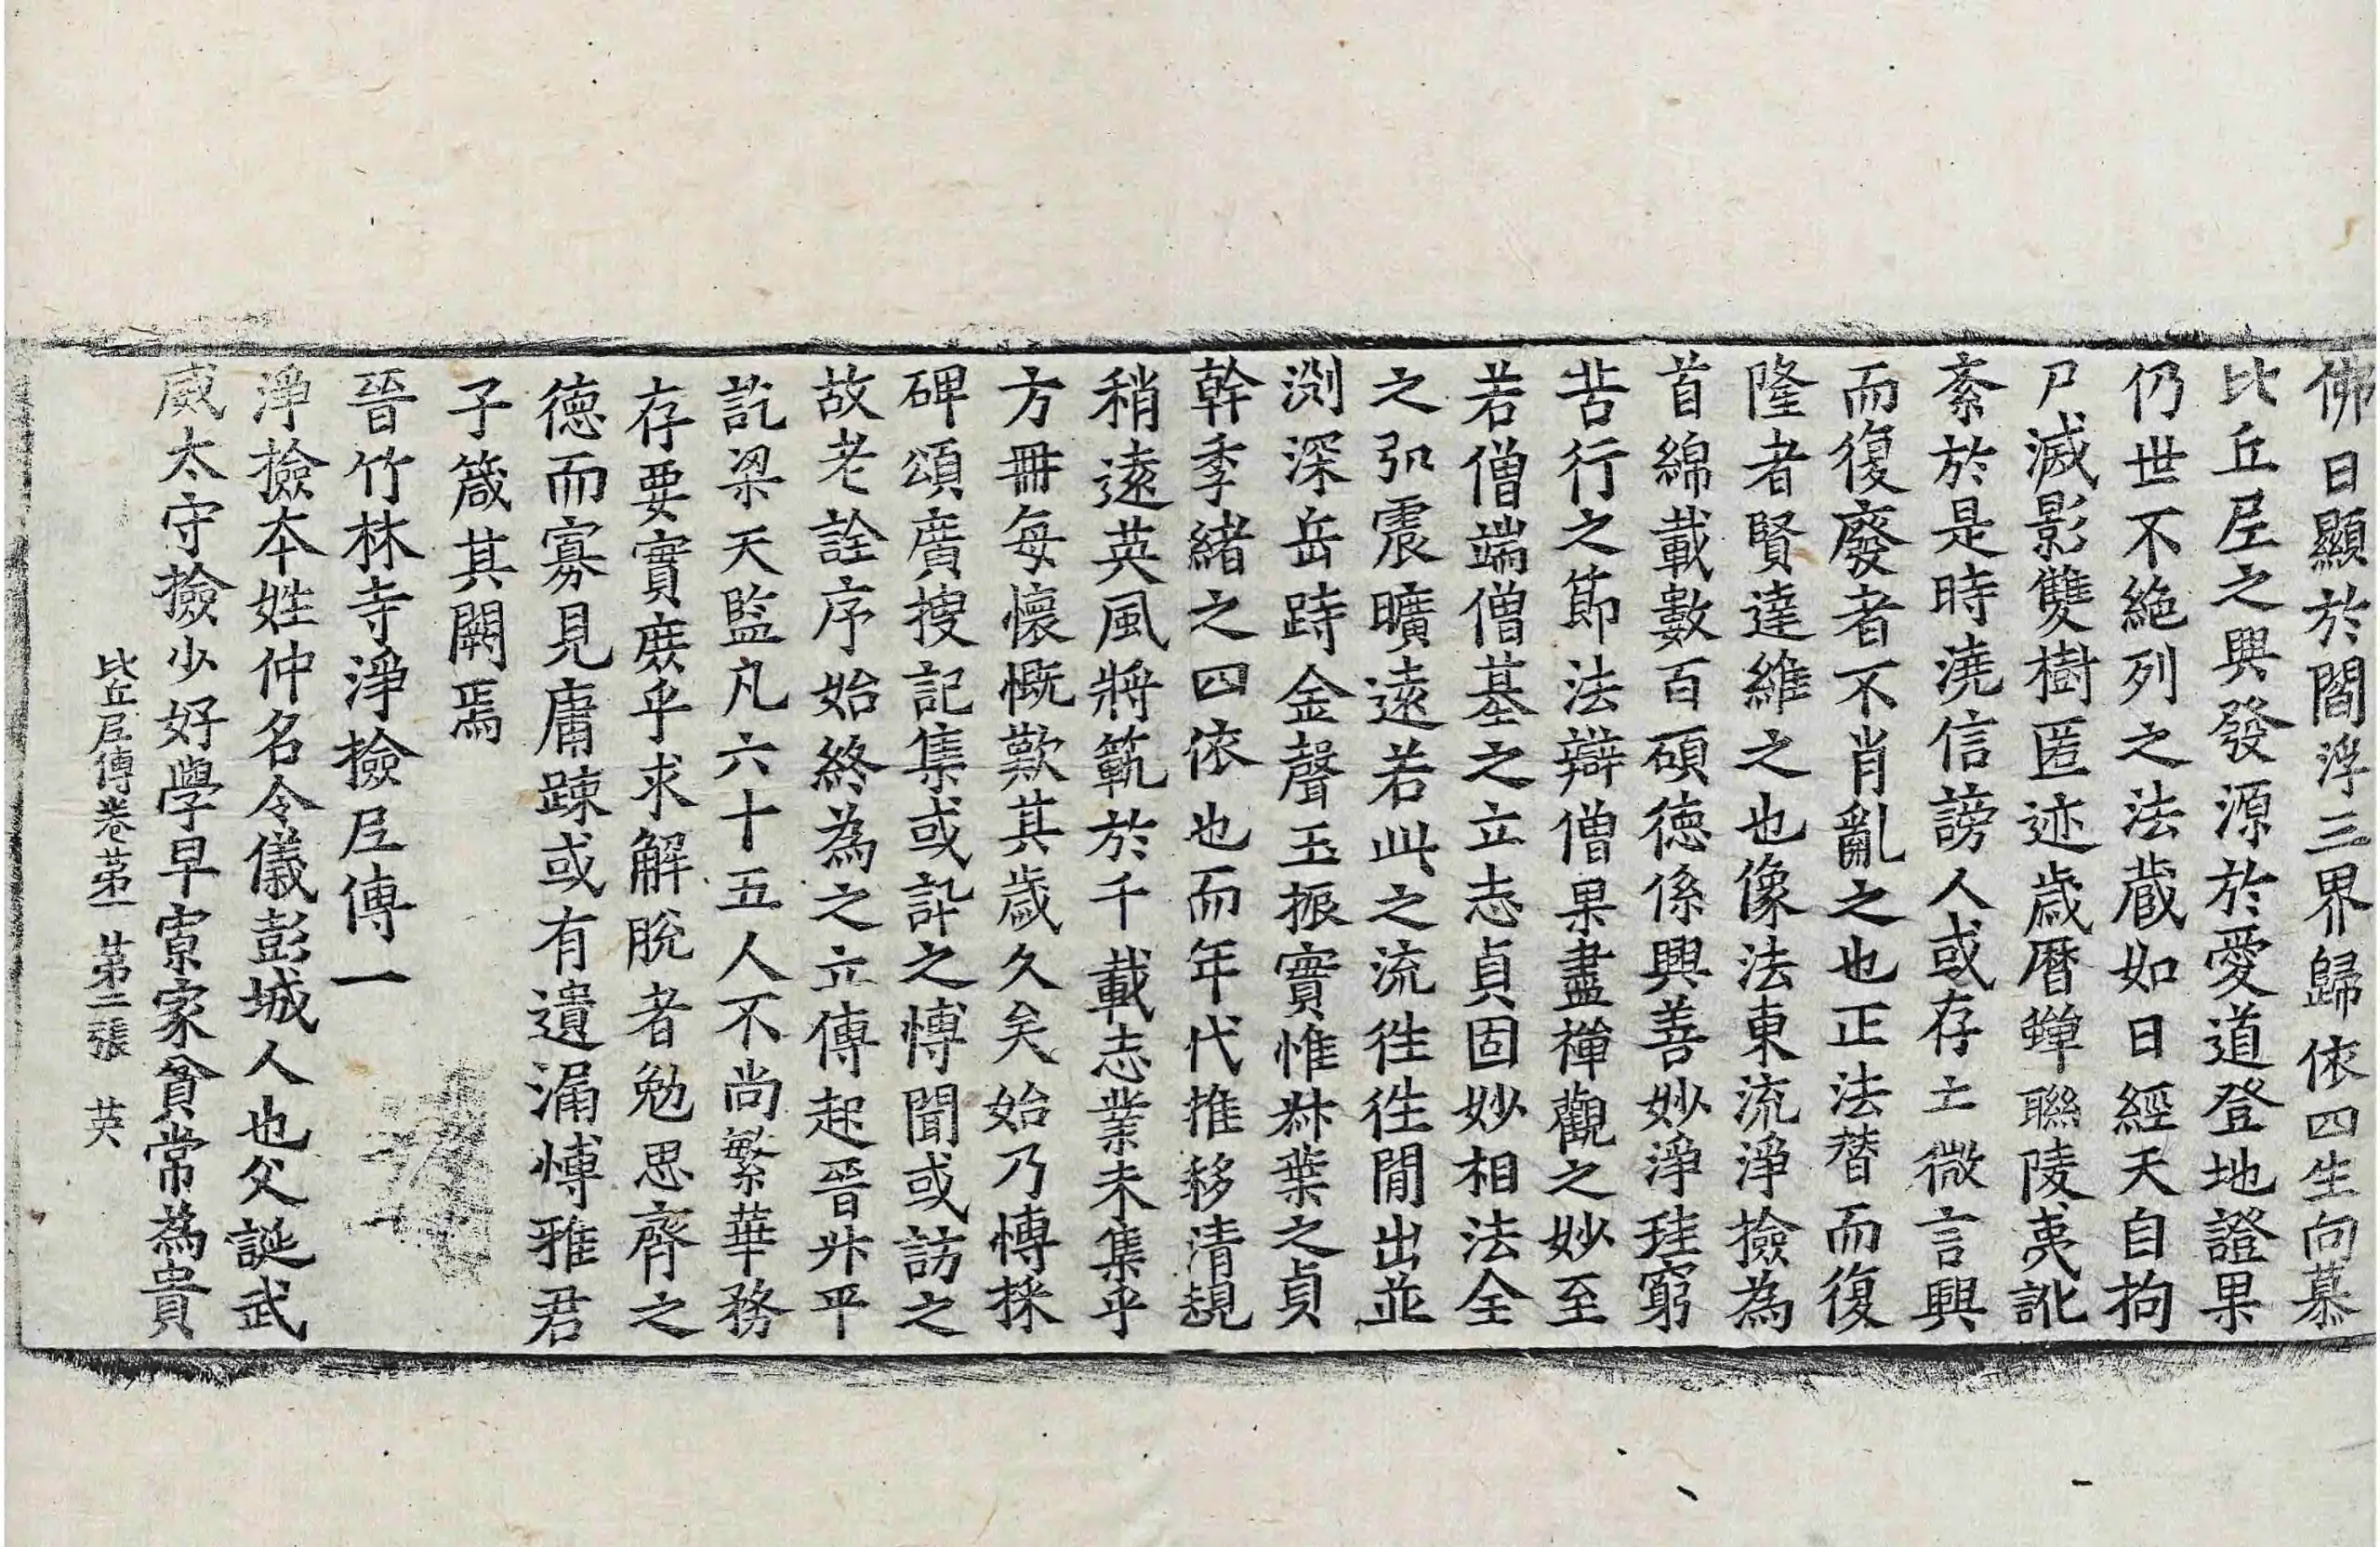 佛日顯於閻浮三界歸依四生向慕
比丘尼之興發源於愛道登地證果
仍世不絶列之法蔵如日經天自拘
尸滅影雙樹匿迹歳曆蟬聯陵夷訛
紊於是時澆信謗人或存亡微言興
而復廢者不肖亂之也正法替而復
隆者賢達維之也像法東流淨撿為
首綿載數百碩德係興善妙淨珪窮
苦行之節法辯僧果盡禪觀之妙至
若僧端僧基之立志貞固妙相法全
之弘震曠遠若此之流徃徃閒出並
渕深岳跱金聲玉振實惟𣗳葉之貞
幹季緒之四依也而年代推移清規
稍遠英風將範於千載志業未集乎
方冊每懷慨歎其歳久矣始乃愽採
碑頌廣搜記集或訊之愽聞或訪之
故老詮序始終為之立傳起晉升平
訖梁天監凡六十五人不尚繁華務
存要實庻乎求解脫者勉思齊之
德而寡見庸踈或有遺漏愽雅君
子箴其闕焉
晉竹林寺淨撿尼傳一
淨撿本姓仲名令儀彭城人也父誕武
威太守撿少好學早寡家貧常為貴
比丘尼傳卷第一 第二張 英